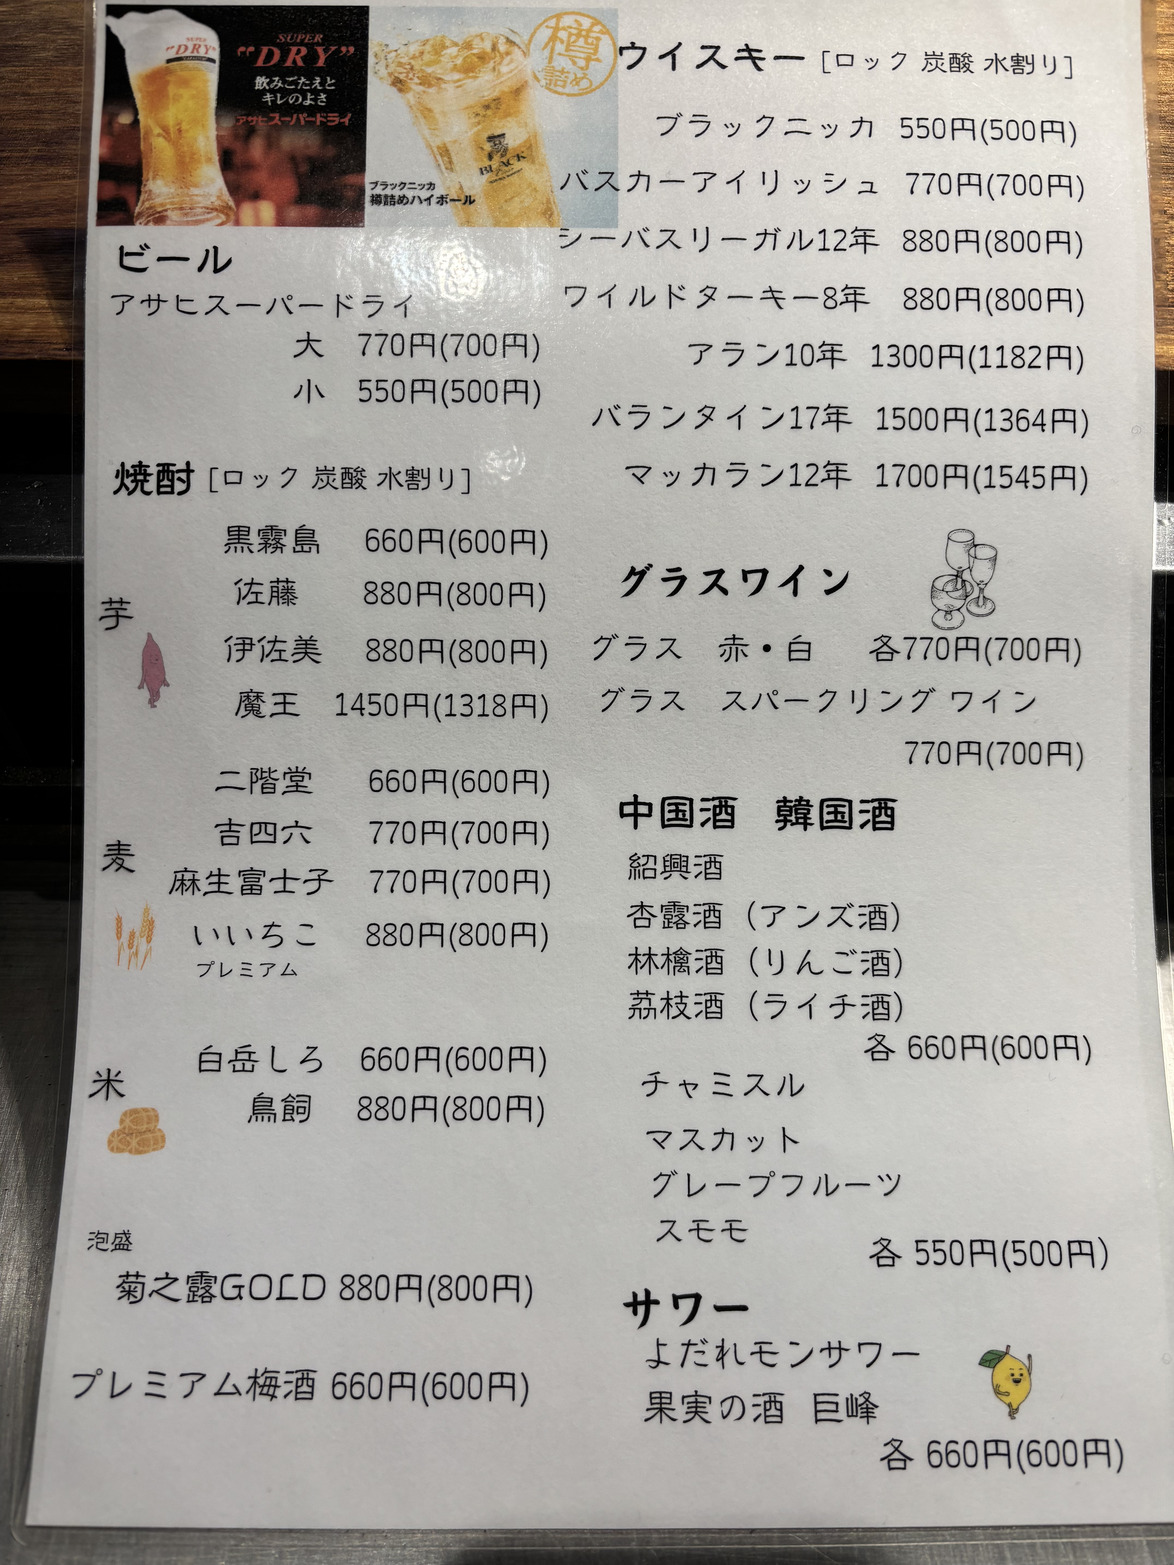 SUPER
"DRY"
SUPER
"DRY"
飲みごたえと
キレのよさ
アサヒスーパードライ
樽
詰め
BLACK
ブラックニッカ
樽詰めハイボール
ビール
アサヒスーパードライ
大 770円(700円)
小 550円(500円)
焼酎 [ロック 炭酸 水割り]
芋
黒霧島 660円(600円)
佐藤 880円(800円)
伊佐美 880円(800円)
魔王 1450円(1318円)
麦
二階堂 660円(600円)
吉四六 770円(700円)
麻生富士子 770円(700円)
いいちこ 880円(800円)
プレミアム
米
白岳しろ 660円(600円)
鳥飼 880円(800円)
泡盛
菊之露GOLD 880円(800円)
プレミアム梅酒 660円(600円)
ウイスキー [ロック 炭酸 水割り]
ブラックニッカ 550円(500円)
バスカーアイリッシュ 770円(700円)
シーバスリーガル12年 880円(800円)
ワイルドターキー8年 880円(800円)
アラン10年 1300円(1182円)
バランタイン17年 1500円(1364円)
マッカラン12年 1700円(1545円)
グラスワイン
グラス 赤・白 各770円(700円)
グラス スパークリング ワイン
770円(700円)
中国酒 韓国酒
紹興酒
杏露酒（アンズ酒）
林檎酒（りんご酒）
茘枝酒（ライチ酒）
各 660円(600円)
チャミスル
マスカット
グレープフルーツ
スモモ
各 550円(500円)
サワー
よだれモンサワー
果実の酒 巨峰
各 660円(600円)